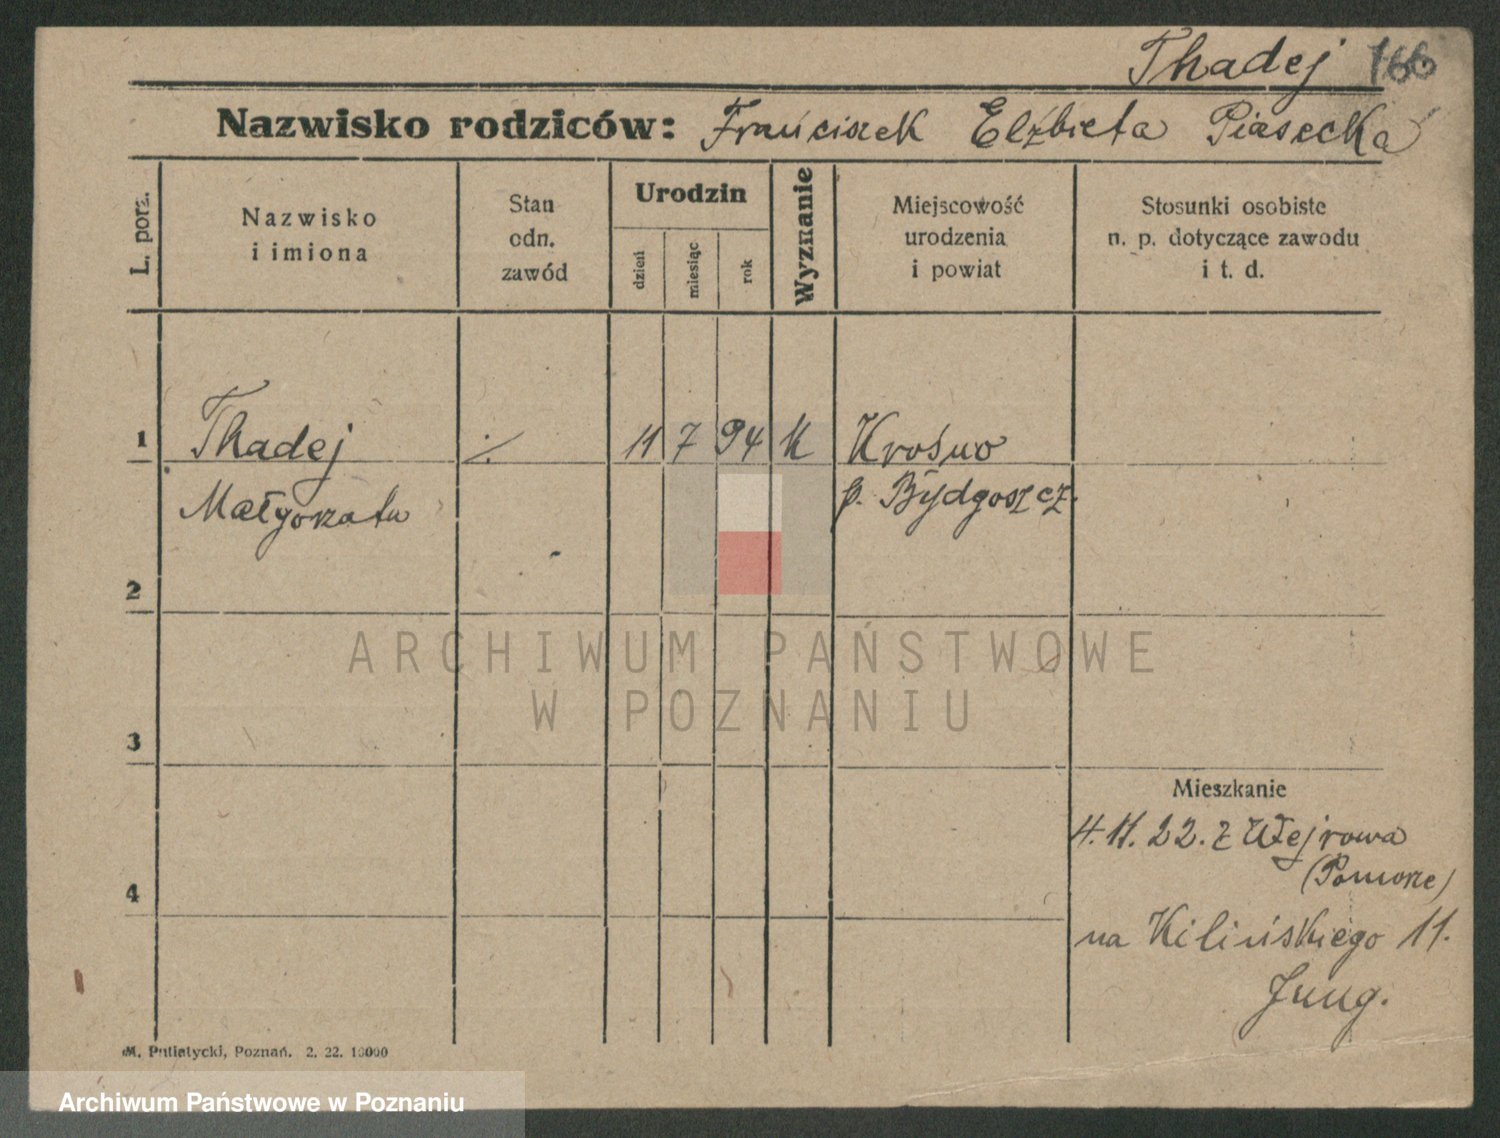 Thadej 166
Nazwisko rodziców: Franciszek Elżbieta Piasecka
L. porz.
Nazwisko
i imiona
Stan
odn.
zawód
Urodzin
dzień
miesiąc
rok
Wyznanie
Miejscowość
urodzenia
i powiat
Stosunki osobiste
n. p. dotyczące zawodu
i t. d.
1 Thadej ./. 11 7 94 K Krośno
Małgorzata p. Bydgoszcz.
2
3
4
ARCHIWUM PAŃSTWOWE
W POZNANIU
Mieszkanie
4.11.22. z Wejrowa
(Pomorze)
na Kilińskiego 11.
Jung.
M. Putiatycki, Poznań. 2. 22. 10000
Archiwum Państwowe w Poznaniu